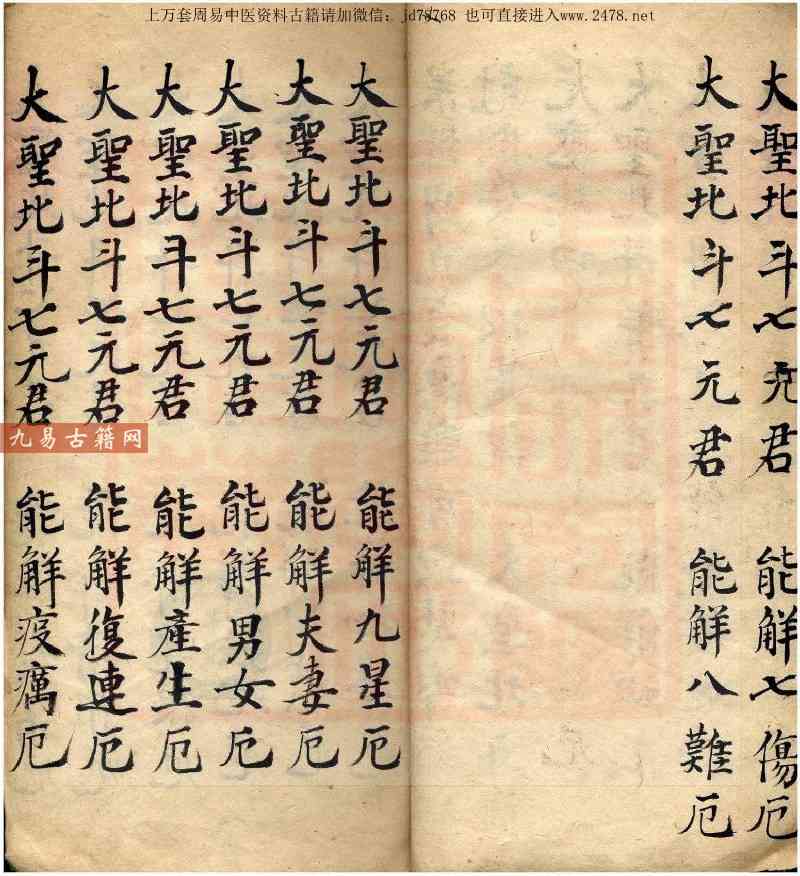 上万套周易中医资料古籍请加微信：jd78768 也可直接进入www.2478.net
大聖北斗七元君 能解七傷厄
大聖北斗七元君 能解八難厄
大聖北斗七元君 能解九星厄
大聖北斗七元君 能解夫妻厄
大聖北斗七元君 能解男女厄
大聖北斗七元君 能解產生厄
大聖北斗七元君 能解復連厄
大聖北斗七元君 能解疫癘厄
九易古籍网